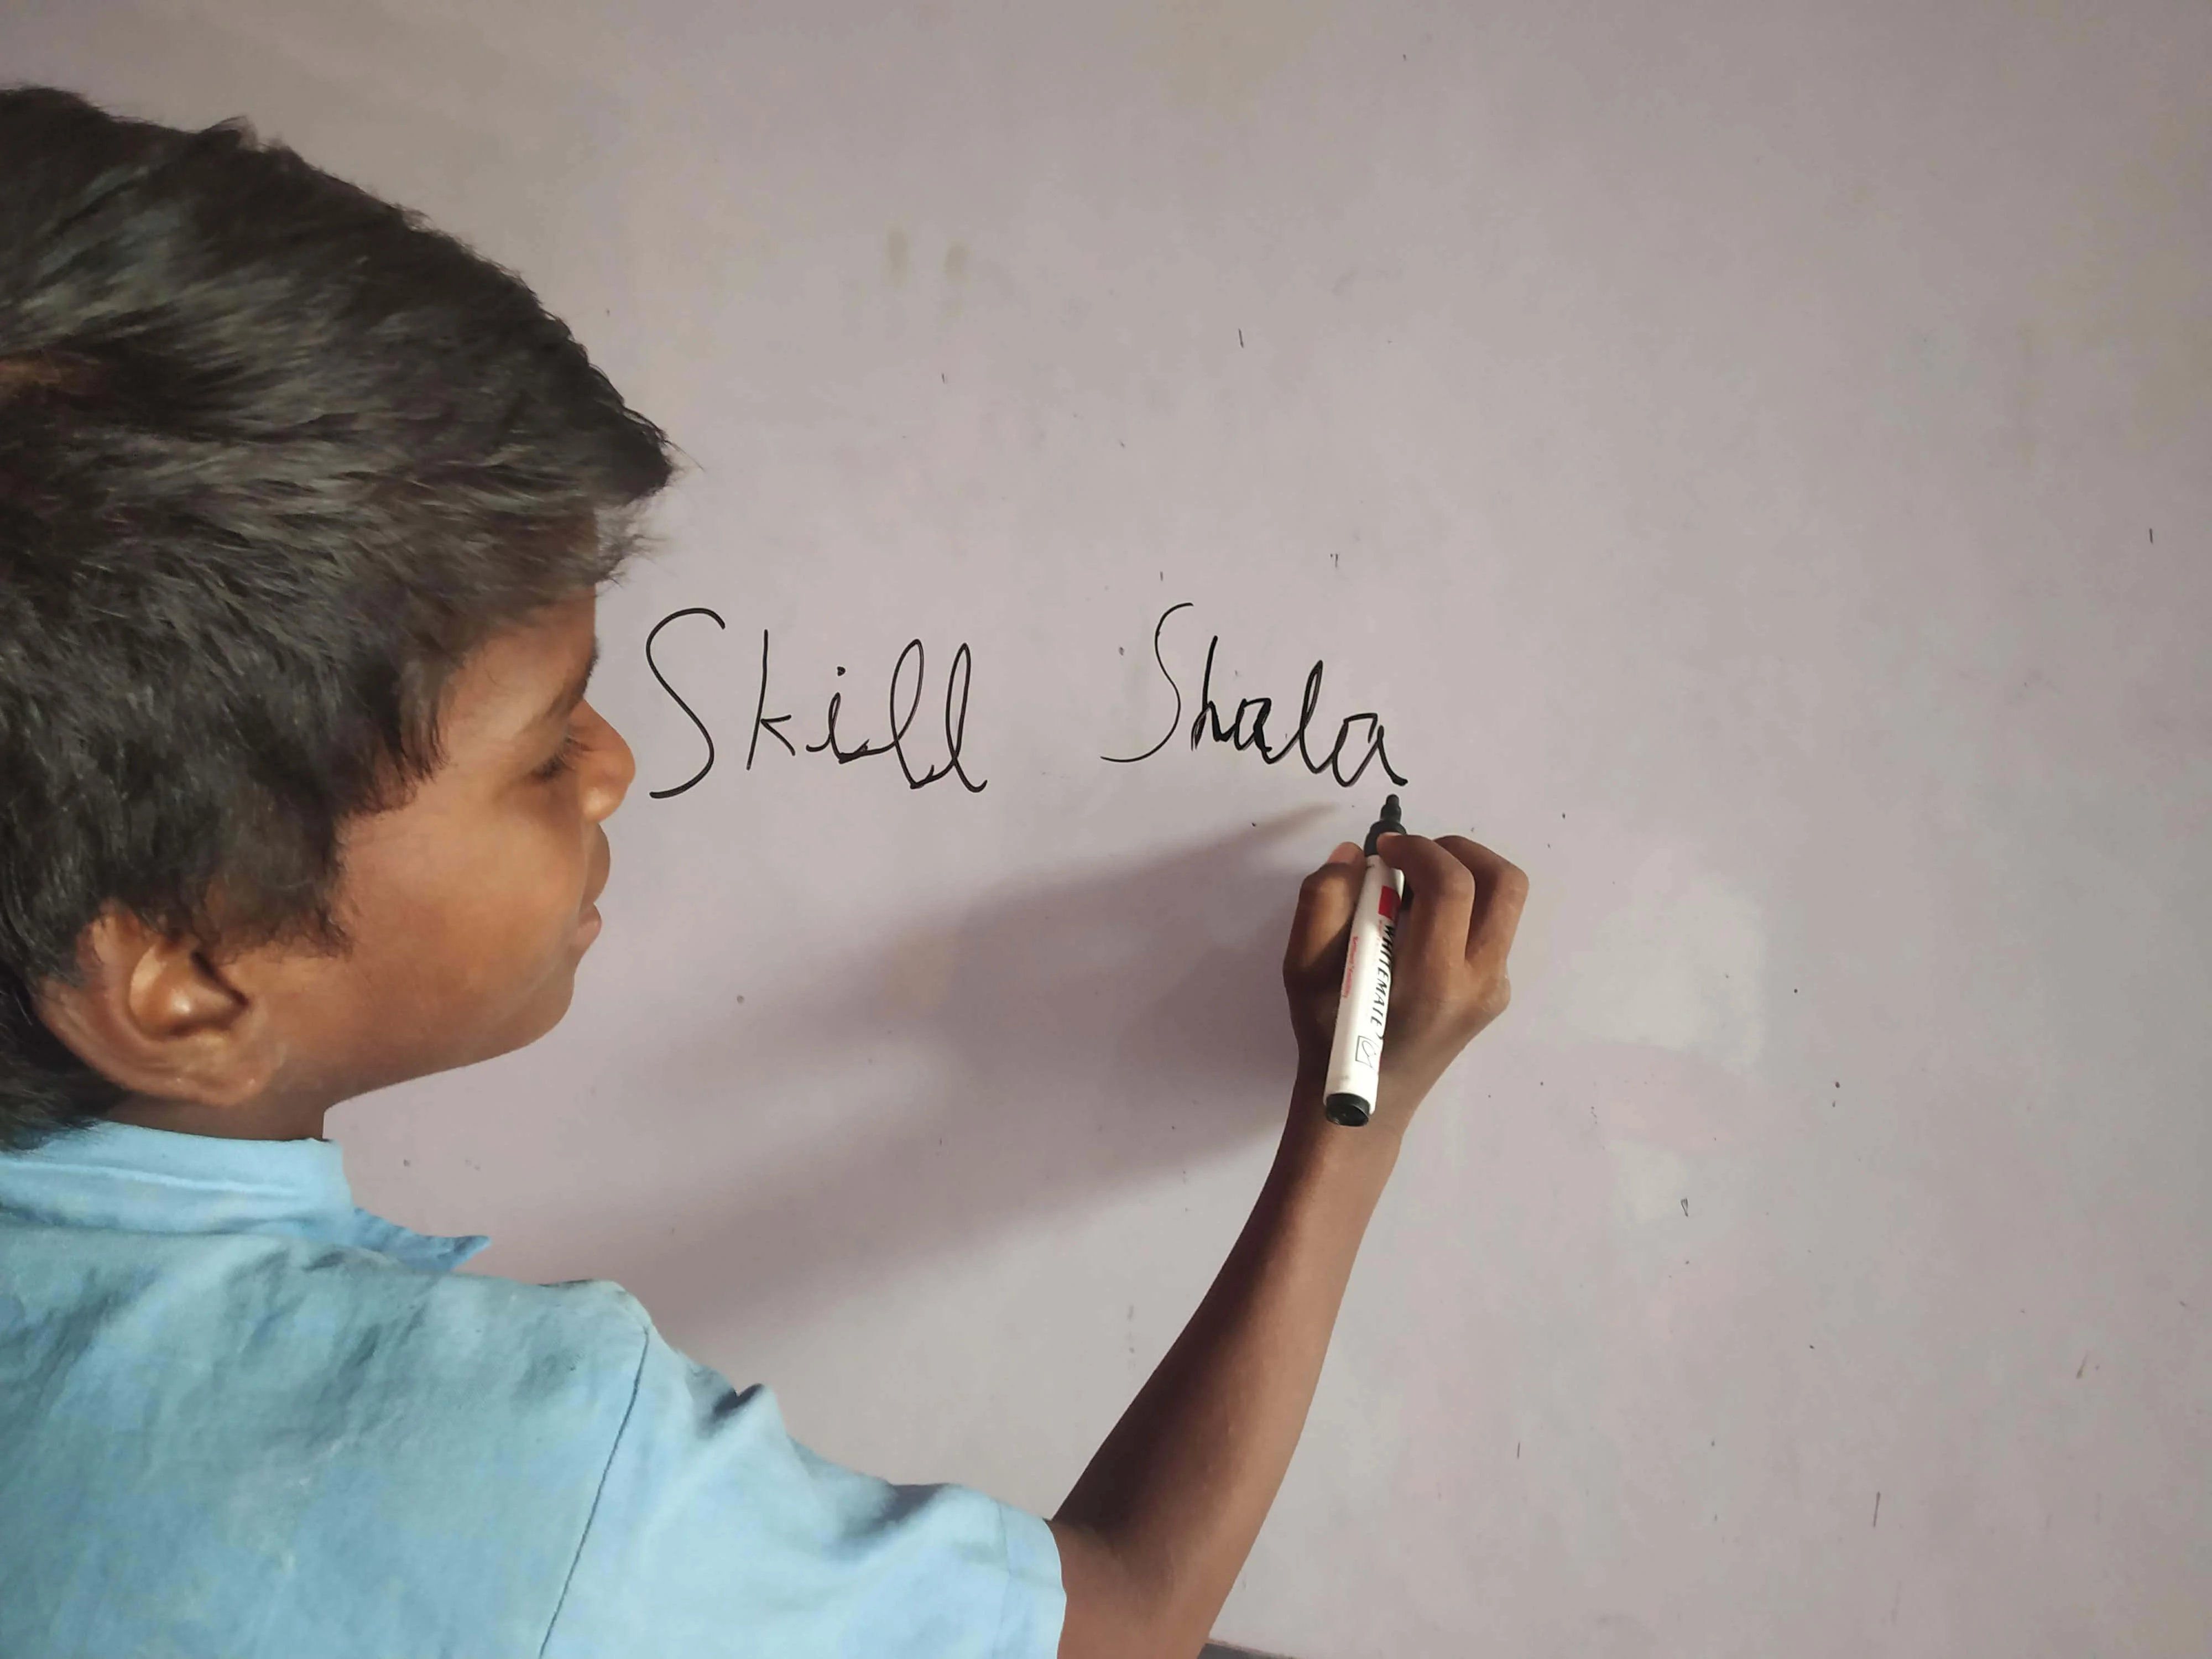 Skill Shala
WHITEMATE